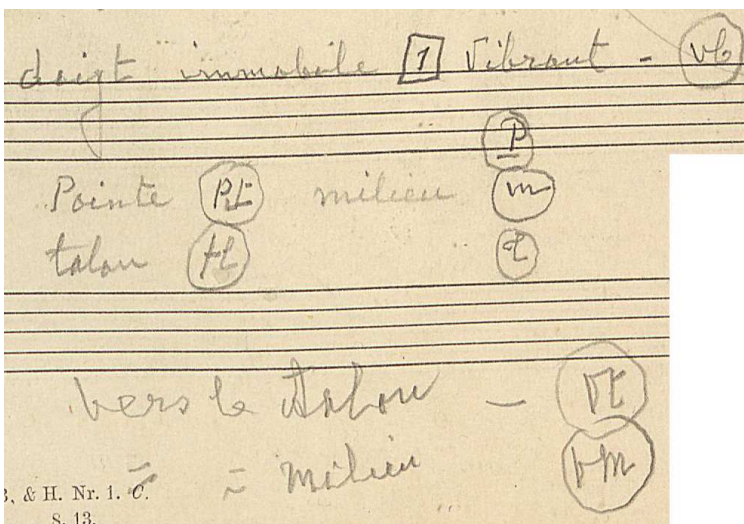 doigt immobile 1 Vibrant - vb
P
Pointe Pt milieu m
talon tl t
vers le talon - Vt
= = milieu Vm
B. & H. Nr. 1. C.
S. 13.